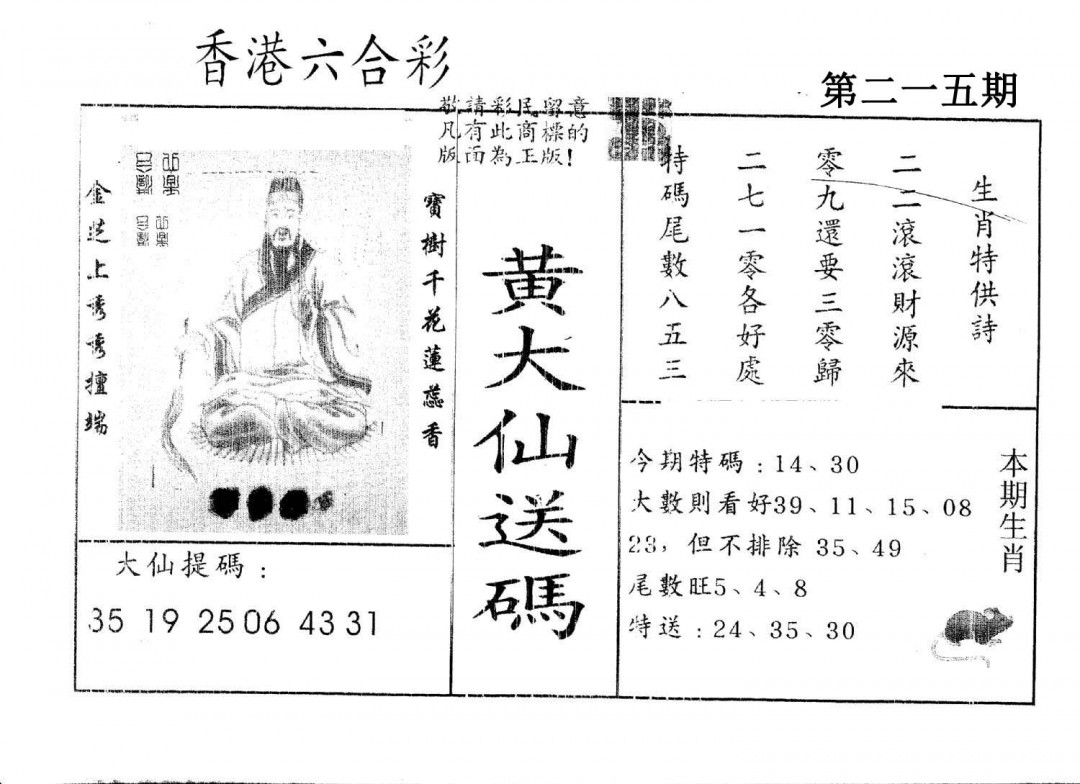 香港六合彩
第二一五期
敬請彩民留意
凡有此商標的
版面為正版！
生肖特供詩
二二滾滾財源來
零九還要三零歸
二七一零各好處
特碼尾數八五三
黃大仙送碼
寶樹千花蓮蕊香
金 上誘誘擅端
大仙提碼：
35 19 25 06 43 31
今期特碼：14、30
大數則看好39、11、15、08
23，但不排除 35、49
尾數旺5、4、8
特送：24、35、30
本期生肖